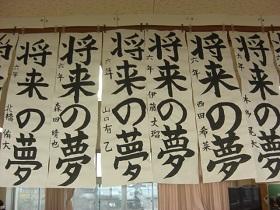 将来の夢
六年
本多
将来の夢
六年 西田希菜
将来の夢
六年 伊藤大瑠
将来の夢
六年 山口有乙
将来の夢
六年 森田晴也
将来の夢
六年 北橋佑大